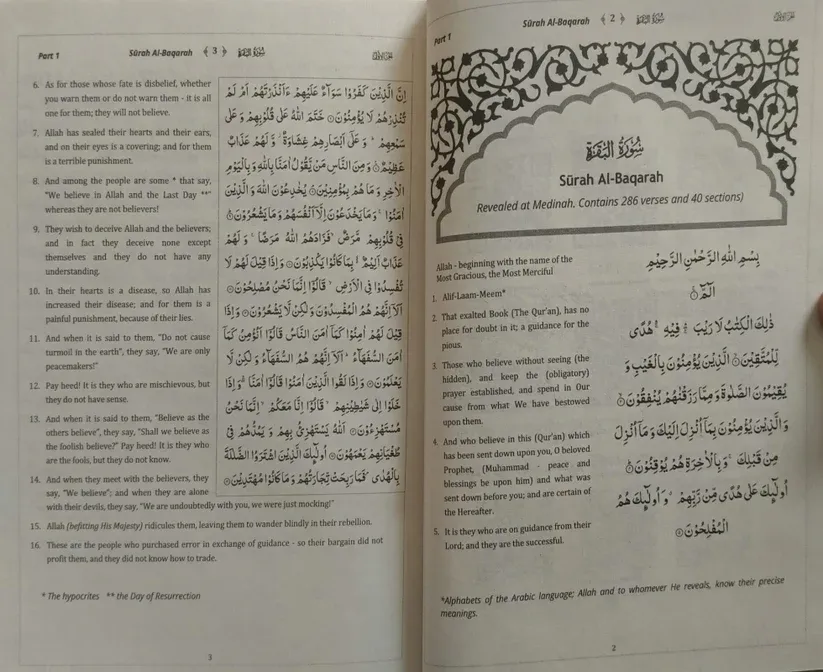 Part 1
Sūrah Al-Baqarah ﴾ 2 ﴿ سُوْرَةُ الْبَقَرَة
سُوْرَةُ الْبَقَرَةِ
Sūrah Al-Baqarah
Revealed at Medinah. Contains 286 verses and 40 sections)
Allah - beginning with the name of the
Most Gracious, the Most Merciful
1. Alif-Laam-Meem*
2. That exalted Book (The Qur'an), has no
place for doubt in it; a guidance for the
pious.
3. Those who believe without seeing (the
hidden), and keep the (obligatory)
prayer established, and spend in Our
cause from what We have bestowed
upon them.
4. And who believe in this (Qur'an) which
has been sent down upon you, O beloved
Prophet, (Muhammad - peace and
blessings be upon him) and what was
sent down before you; and are certain of
the Hereafter.
5. It is they who are on guidance from their
Lord; and they are the successful.
بِسْمِ اللهِ الرَّحْمٰنِ الرَّحِيْمِ
الٓمّٓ ۚ
ذٰلِكَ الْكِتٰبُ لَا رَيْبَ ۛ فِيْهِ ۛ هُدًى
لِّلْمُتَّقِيْنَ ۙ الَّذِيْنَ يُؤْمِنُوْنَ بِالْغَيْبِ وَ
يُقِيْمُوْنَ الصَّلٰوةَ وَ مِمَّا رَزَقْنٰهُمْ يُنْفِقُوْنَ ۙ
وَ الَّذِيْنَ يُؤْمِنُوْنَ بِمَاۤ اُنْزِلَ اِلَيْكَ وَ مَاۤ اُنْزِلَ
مِنْ قَبْلِكَ ۚ وَ بِالْاٰخِرَةِ هُمْ يُوْقِنُوْنَ ؕ
اُولٰٓئِكَ عَلٰى هُدًى مِّنْ رَّبِّهِمْ ۗ وَ اُولٰٓئِكَ هُمُ
الْمُفْلِحُوْنَ
*Alphabets of the Arabic language; Allah and to whomever He reveals, know their precise
meanings.
2
Part 1
Sūrah Al-Baqarah ﴾ 3 ﴿ سُوْرَةُ الْبَقَرَة
6. As for those whose fate is disbelief, whether
you warn them or do not warn them - it is all
one for them; they will not believe.
7. Allah has sealed their hearts and their ears,
and on their eyes is a covering; and for them
is a terrible punishment.
8. And among the people are some * that say,
"We believe in Allah and the Last Day **"
whereas they are not believers!
9. They wish to deceive Allah and the believers;
and in fact they deceive none except
themselves and they do not have any
understanding.
10. In their hearts is a disease, so Allah has
increased their disease; and for them is a
painful punishment, because of their lies.
11. And when it is said to them, "Do not cause
turmoil in the earth", they say, "We are only
peacemakers!"
12. Pay heed! It is they who are mischievous, but
they do not have sense.
13. And when it is said to them, "Believe as the
others believe", they say, "Shall we believe as
the foolish believe?" Pay heed! It is they who
are the fools, but they do not know.
14. And when they meet with the believers, they
say, "We believe"; and when they are alone
with their devils, they say, "We are undoubtedly with you, we were just mocking!"
15. Allah (befitting His Majesty) ridicules them, leaving them to wander blindly in their rebellion.
16. These are the people who purchased error in exchange of guidance - so their bargain did not
profit them, and they did not know how to trade.
اِنَّ الَّذِيْنَ كَفَرُوْا سَوَآءٌ عَلَيْهِمْ ءَاَنْذَرْتَهُمْ اَمْ لَمْ
تُنْذِرْهُمْ لَا يُؤْمِنُوْنَ خَتَمَ اللهُ عَلٰى قُلُوْبِهِمْ وَ عَلٰى
سَمْعِهِمْ ؕ وَ عَلٰۤى اَبْصَارِهِمْ غِشَاوَةٌ ۫ وَّ لَهُمْ عَذَابٌ
عَظِيْمٌ ؒ وَ مِنَ النَّاسِ مَنْ يَّقُوْلُ اٰمَنَّا بِاللهِ وَ بِالْيَوْمِ
الْاٰخِرِ وَ مَا هُمْ بِمُؤْمِنِيْنَ ۘ يُخٰدِعُوْنَ اللهَ وَ الَّذِيْنَ
اٰمَنُوْا ۚ وَ مَا يَخْدَعُوْنَ اِلَّاۤ اَنْفُسَهُمْ وَ مَا يَشْعُرُوْنَ ؕ
فِيْ قُلُوْبِهِمْ مَّرَضٌ ۙ فَزَادَهُمُ اللهُ مَرَضًا ۚ وَ لَهُمْ
عَذَابٌ اَلِيْمٌۢ ۙ بِمَا كَانُوْا يَكْذِبُوْنَ وَ اِذَا قِيْلَ لَهُمْ لَا
تُفْسِدُوْا فِي الْاَرْضِ ۙ قَالُوْۤا اِنَّمَا نَحْنُ مُصْلِحُوْنَ
اَلَاۤ اِنَّهُمْ هُمُ الْمُفْسِدُوْنَ وَ لٰكِنْ لَّا يَشْعُرُوْنَ وَ اِذَا
قِيْلَ لَهُمْ اٰمِنُوْا كَمَاۤ اٰمَنَ النَّاسُ قَالُوْۤا اَنُؤْمِنُ كَمَاۤ
اٰمَنَ السُّفَهَآءُ ؕ اَلَاۤ اِنَّهُمْ هُمُ السُّفَهَآءُ وَ لٰكِنْ لَّا
يَعْلَمُوْنَ وَ اِذَا لَقُوا الَّذِيْنَ اٰمَنُوْا قَالُوْۤا اٰمَنَّا ۚ وَ اِذَا
خَلَوْا اِلٰى شَيٰطِيْنِهِمْ ۙ قَالُوْۤا اِنَّا مَعَكُمْ ۙ اِنَّمَا نَحْنُ
مُسْتَهْزِءُوْنَ اَللهُ يَسْتَهْزِئُ بِهِمْ وَ يَمُدُّهُمْ فِيْ
طُغْيَانِهِمْ يَعْمَهُوْنَ اُولٰٓئِكَ الَّذِيْنَ اشْتَرَوُا الضَّلٰلَةَ
بِالْهُدٰى ۪ فَمَا رَبِحَتْ تِّجَارَتُهُمْ وَ مَا كَانُوْا مُهْتَدِيْنَ
* The hypocrites ** the Day of Resurrection
3